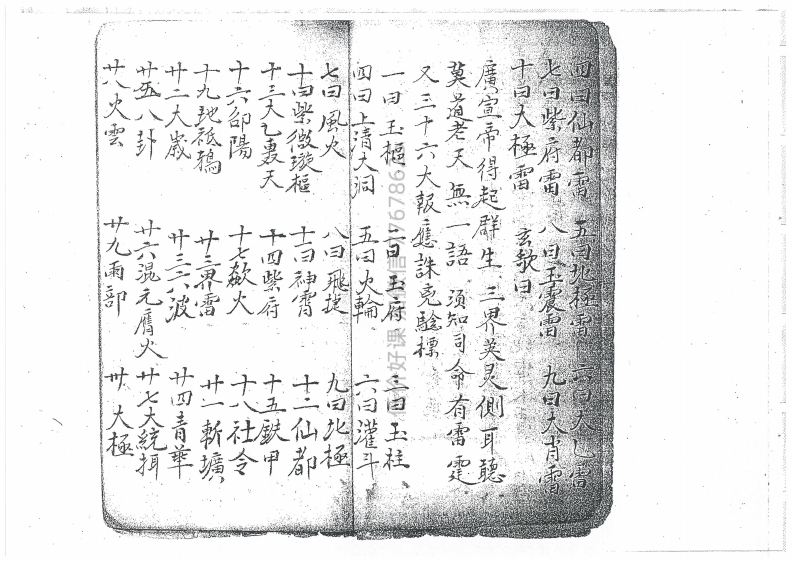 四曰仙都雷　五曰北極雷　六曰大乙雷
七曰紫府雷　八曰玉震雷　九曰大肖雷
十曰大極雷　玄欬曰
廣宣帝得起群生　三界英灵側耳聽
莫道老天無一語　須知司命有雷霆
又三十六大報應誅克騐標
一曰玉樞　二曰玉府　三曰玉柱
四曰上清大洞　五曰火輪　六曰灌斗
七曰風火　八曰飛捷　九曰北極
十曰紫微璇樞　十一曰神霄　十二仙都
十三大乙轟天　十四紫府　十五鉄甲
十六邵陽　十七欻火　十八社令
十九地祇鴉　廿界雷　廿一斬壙
廿二大歲　廿三六波　廿四青華
廿五八卦　廿六混元鷹火　廿七大統揖
廿八火雲　廿九雨部　卅大極